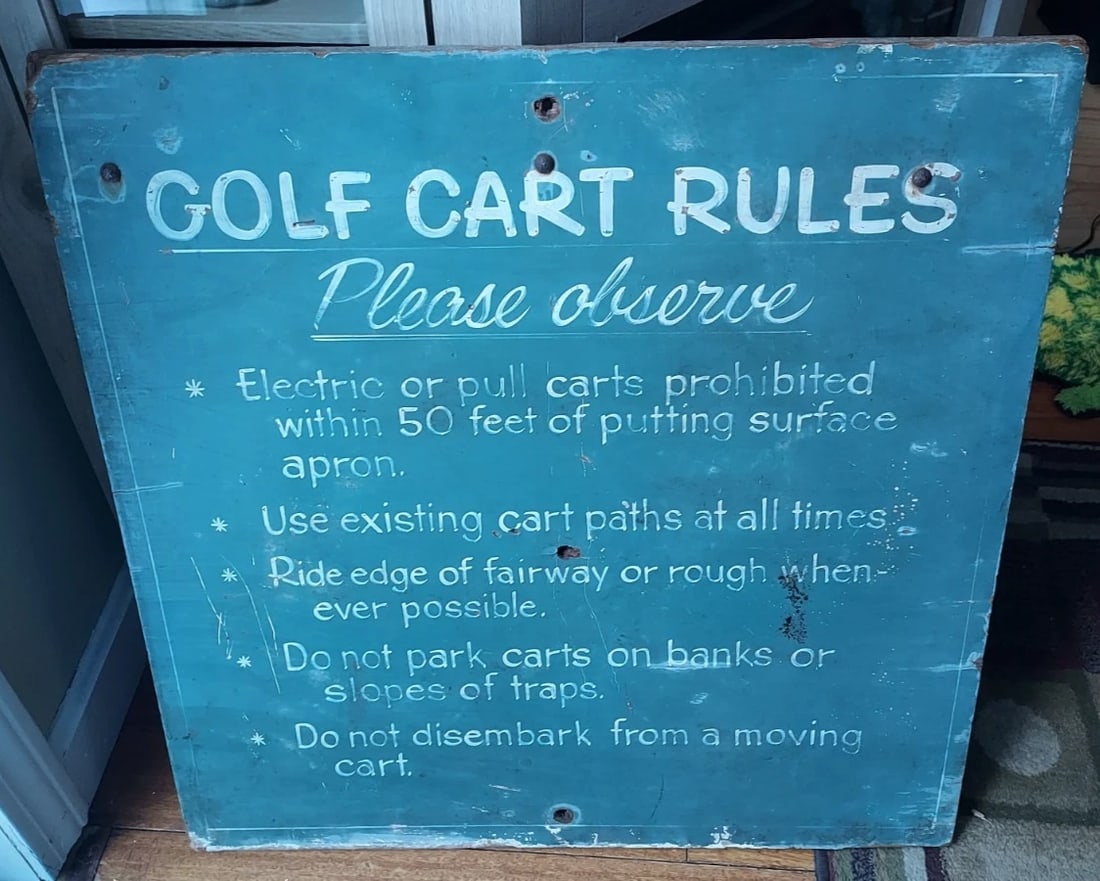 GOLF CART RULES
Please observe
* Electric or pull carts prohibited
within 50 feet of putting surface
apron.
* Use existing cart paths at all times.
* Ride edge of fairway or rough when-
ever possible.
* Do not park carts on banks or
slopes of traps.
* Do not disembark from a moving
cart.